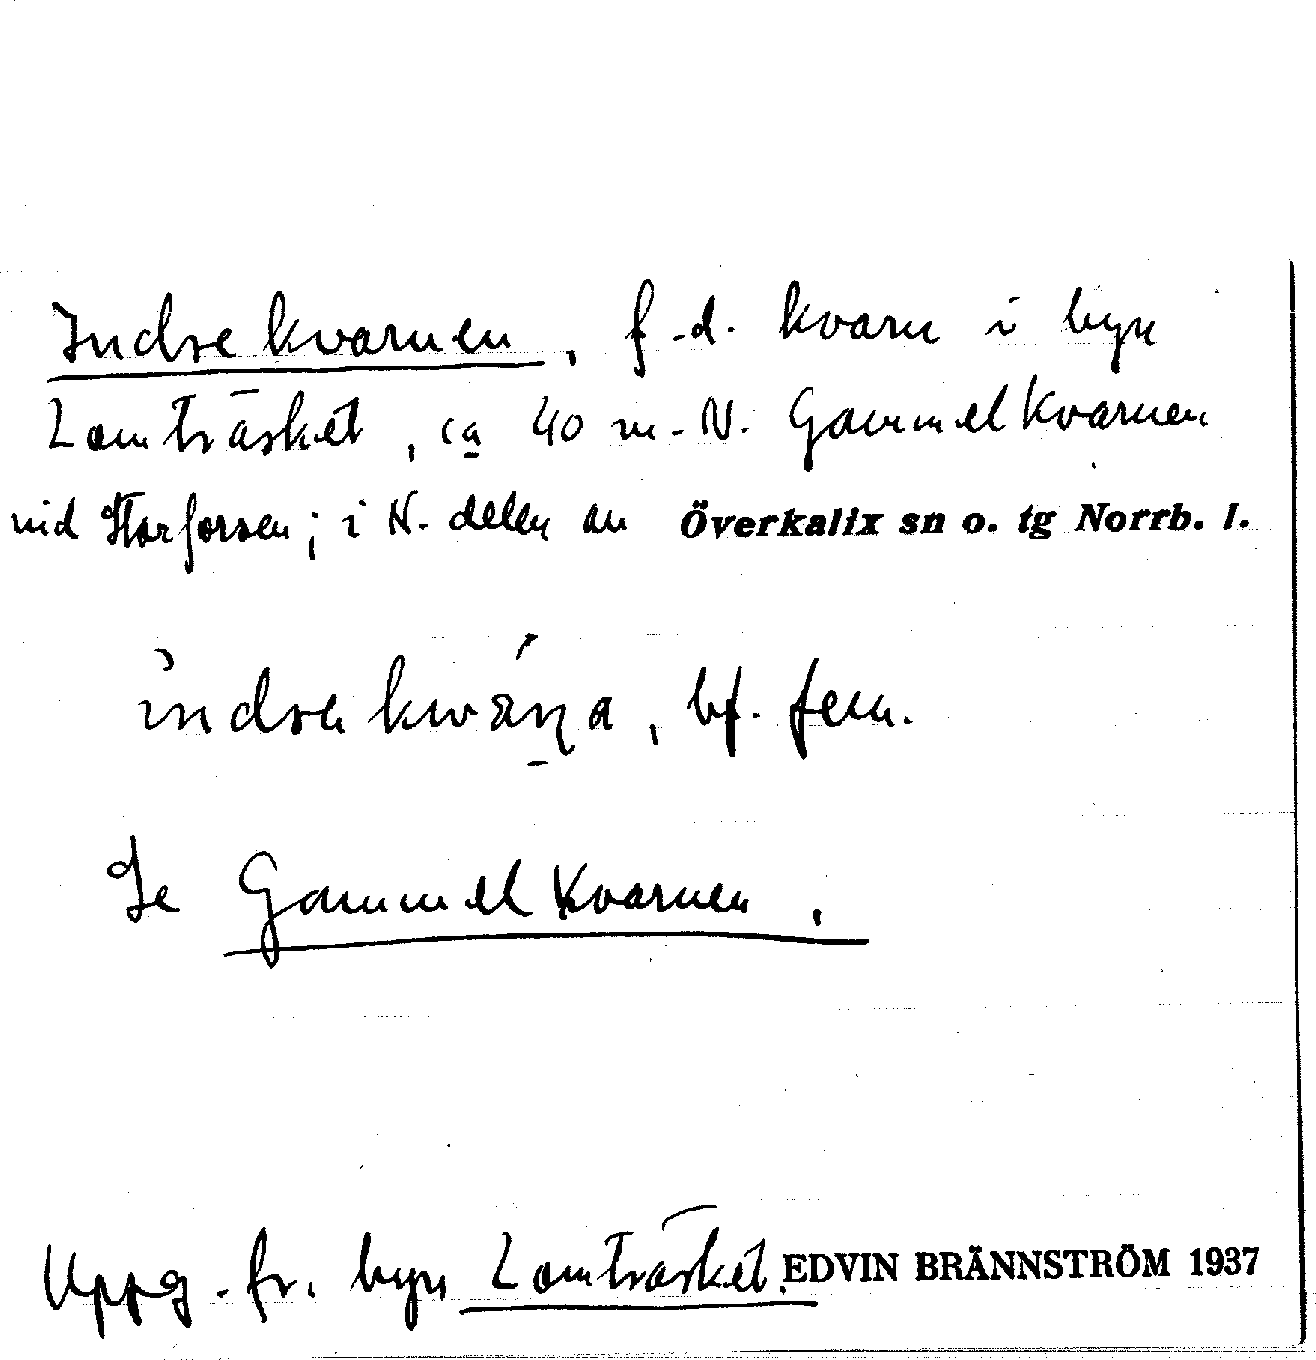 Indre kvarnen, f.d. kvarn i byn
Lomträsket, ca 40 m. N. Gammelkvarnen
vid Storforsen; i N. delen av Överkalix sn o. tg Norrb. l.
bf. fem.
Se Gammelkvarnen.
Uppg. fr. byn Lomträsket. EDVIN BRÄNNSTRÖM 1937